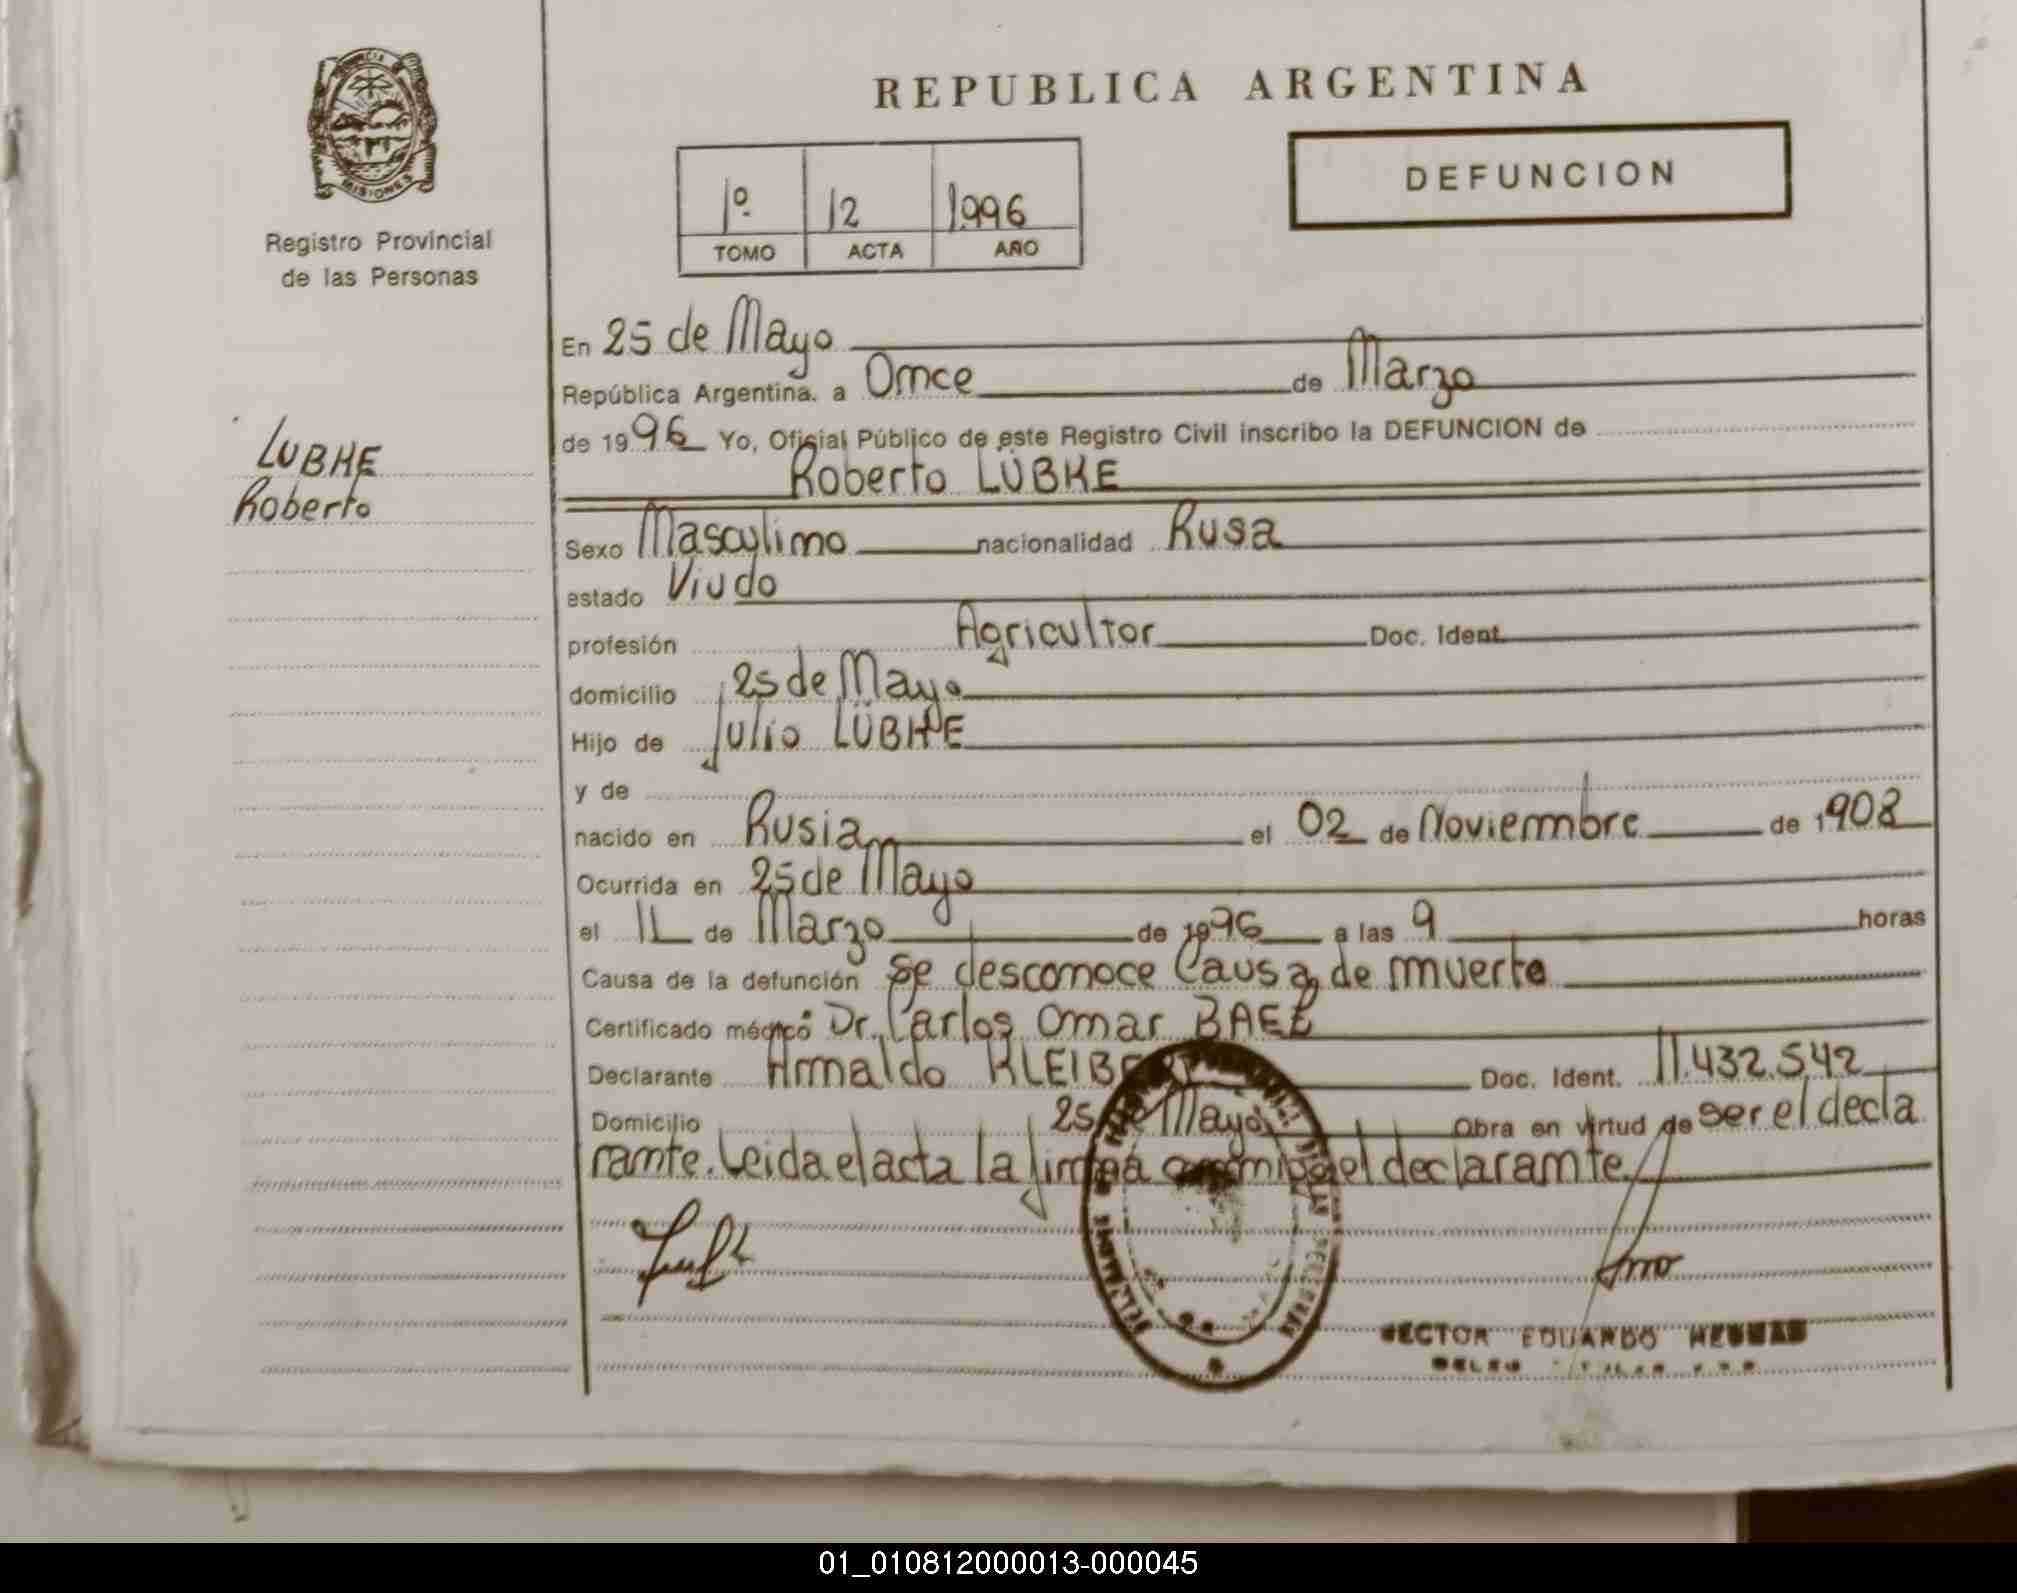 REPUBLICA ARGENTINA
DEFUNCION
1º 12 1.996
TOMO ACTA AÑO
MISIONES
Registro Provincial
de las Personas
LUBKE
Roberto
En 25 de Mayo
República Argentina, a Once de Marzo
de 1996 Yo, Oficial Público de este Registro Civil inscribo la DEFUNCION de
Roberto LÜBKE
Sexo Masculino nacionalidad Rusa
estado Viudo
profesión Agricultor Doc. Ident.
domicilio 25 de Mayo
Hijo de Julio LÜBKE
y de
nacido en Rusia el 02 de Noviembre de 1908
Ocurrida en 25 de Mayo
el 11 de Marzo de 1996 a las 9 horas
Causa de la defunción se desconoce Causa de muerte
Certificado médico Dr. Carlos Omar BAEZ
Declarante Arnaldo KLEIBERT Doc. Ident. 11.432.542
Domicilio 25 de Mayo Obra en virtud de ser el decla
rante. Leida el acta la firma conmigo el declarante
HECTOR EDUARDO
01_010812000013-000045